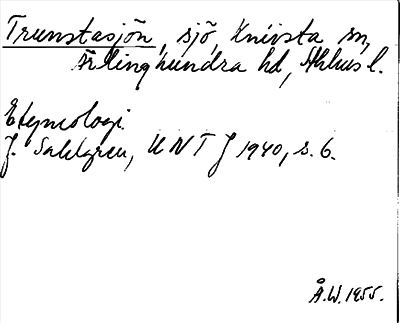 Trunstasjön, sjö, Knivsta sn,
Ärlinghundra hd, Sthlms l.
Etymologi.
J. Sahlgren, UNT J 1940, s. 6.
Å.W. 1955.